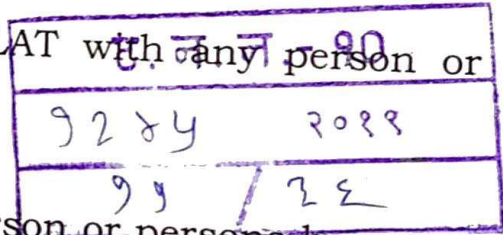 AT with any person or
१२४५ २०११
११ / ३६
son or person